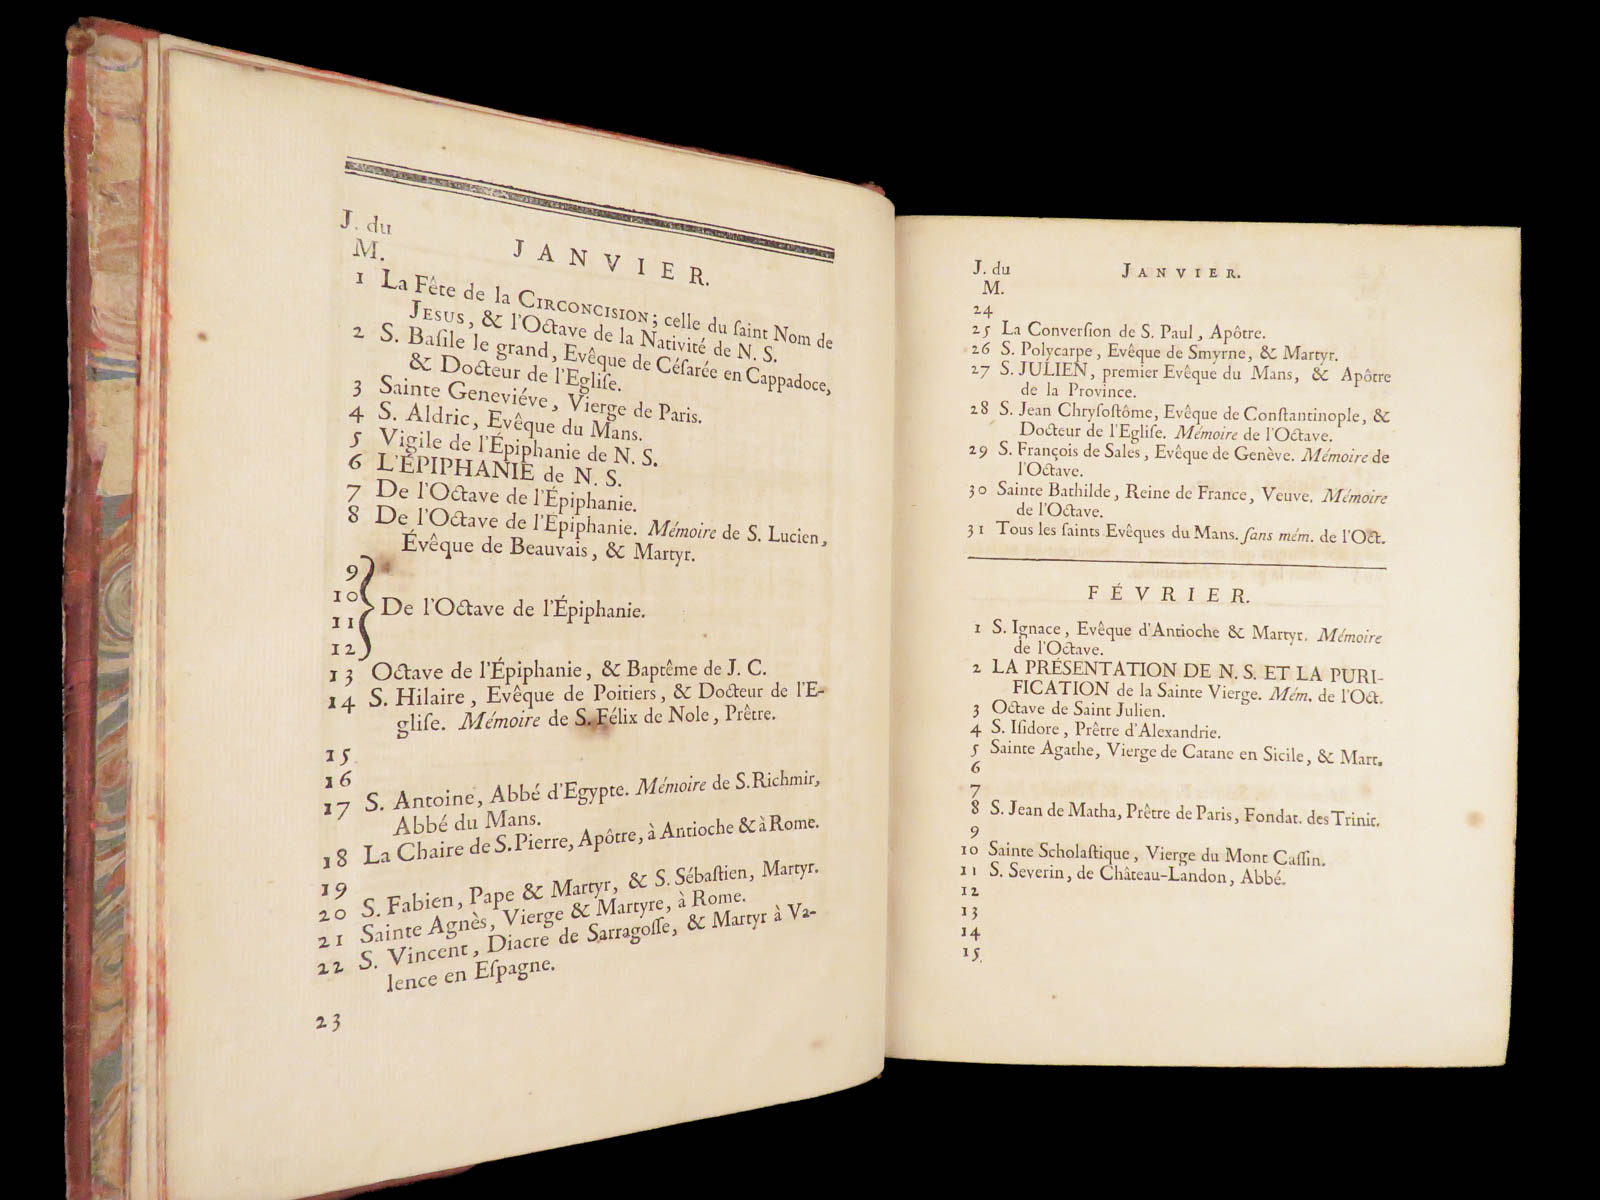 J. du
M.
JANVIER.
1 La Fête de la CIRCONCISION; celle du ſaint Nom de
JESUS, & l'Octave de la Nativité de N. S.
2 S. Baſile le grand, Evêque de Céſarée en Cappadoce,
& Docteur de l'Egliſe.
3 Sainte Geneviéve, Vierge de Paris.
4 S. Aldric, Evêque du Mans.
5 Vigile de l'Épiphanie de N. S.
6 L'ÉPIPHANIE de N. S.
7 De l'Octave de l'Épiphanie.
8 De l'Octave de l'Épiphanie. Mémoire de S. Lucien,
Évêque de Beauvais, & Martyr.
9
10
11
12
De l'Octave de l'Épiphanie.
13 Octave de l'Épiphanie, & Baptême de J. C.
14 S. Hilaire, Evêque de Poitiers, & Docteur de l'E-
gliſe. Mémoire de S. Félix de Nole, Prêtre.
15
16
17 S. Antoine, Abbé d'Egypte. Mémoire de S. Richmir,
Abbé du Mans.
18 La Chaire de S. Pierre, Apôtre, à Antioche & à Rome.
19
20 S. Fabien, Pape & Martyr, & S. Sébaſtien, Martyr.
21 Sainte Agnès, Vierge & Martyre, à Rome.
22 S. Vincent, Diacre de Sarragoſſe, & Martyr à Va-
lence en Eſpagne.
23
J. du
M.
JANVIER.
24
25 La Converſion de S. Paul, Apôtre.
26 S. Polycarpe, Evêque de Smyrne, & Martyr.
27 S. JULIEN, premier Evêque du Mans, & Apôtre
de la Province.
28 S. Jean Chryſoſtôme, Evêque de Conſtantinople, &
Docteur de l'Egliſe. Mémoire de l'Octave.
29 S. François de Sales, Evêque de Genêve. Mémoire de
l'Octave.
30 Sainte Bathilde, Reine de France, Veuve. Mémoire
de l'Octave.
31 Tous les ſaints Evêques du Mans. ſans mém. de l'Oct.
FÉVRIER.
1 S. Ignace, Evêque d'Antioche & Martyr. Mémoire
de l'Octave.
2 LA PRÉSENTATION DE N. S. ET LA PURI-
FICATION de la Sainte Vierge. Mém. de l'Oct.
3 Octave de Saint Julien.
4 S. Iſidore, Prêtre d'Alexandrie.
5 Sainte Agathe, Vierge de Catane en Sicile, & Mart.
6
7
8 S. Jean de Matha, Prêtre de Paris, Fondat. des Trinit.
9
10 Sainte Scholaſtique, Vierge du Mont Caſſin.
11 S. Severin, de Château-Landon, Abbé.
12
13
14
15